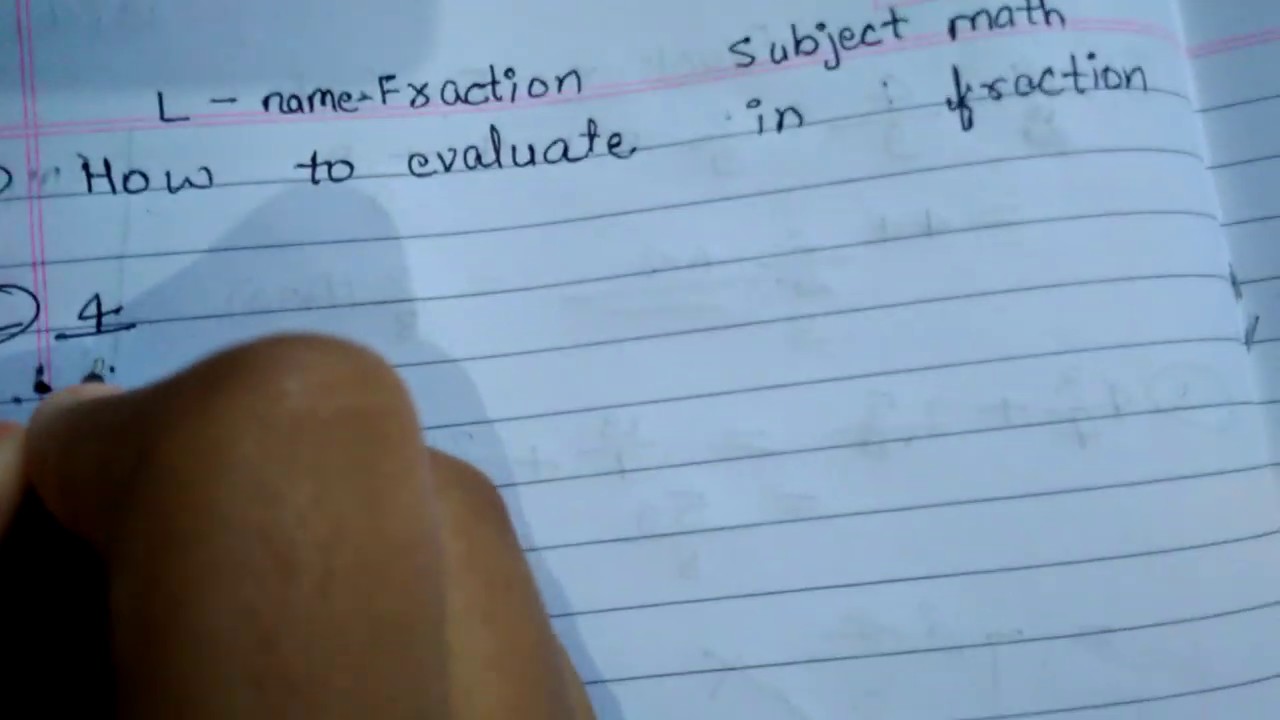 subject math
L - name-Fraction
How to evaluate in fraction
4